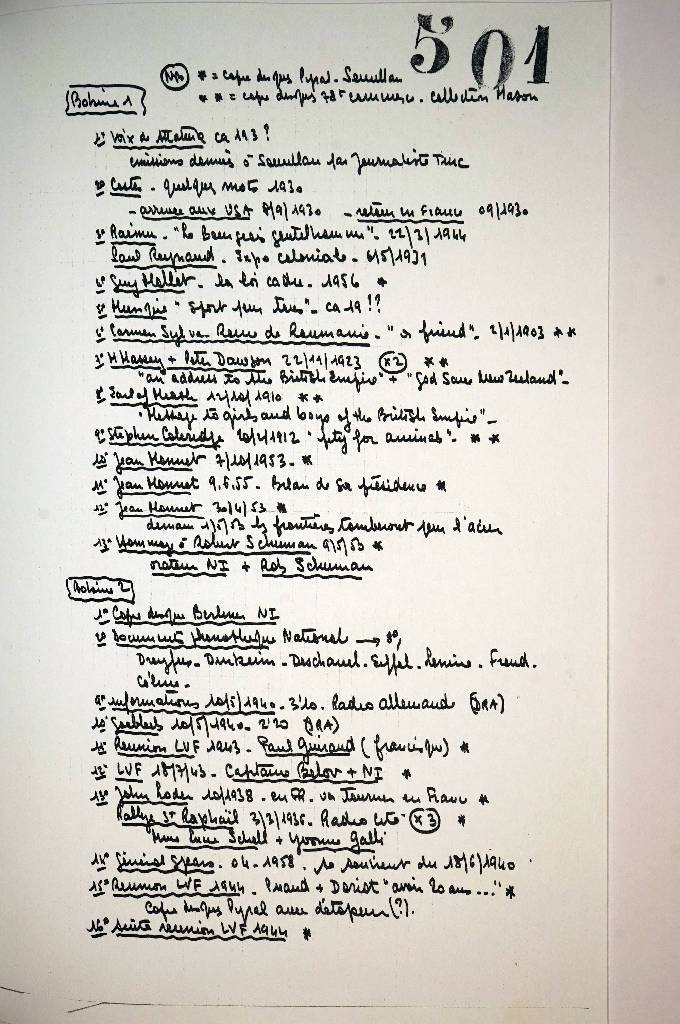 501
NB * = copie disques Pyral - Saoullan
* * = copie disques 78t commerce. collection Mason
Bobine 1
1° Voix de ca 193?
emissions données à Saoullan par Journaliste Turc
2° Costes - quelques mots 1930
- arrivée aux USA 8/9/1930 - retour en France 09/1930
3° Raimu - "le bourgeois gentilhomme" - 22/2/1944
Paul Reynaud - Expo coloniale - 6/5/1931
4° Guy Mollet - la loi cadre - 1956 *
5° "Sport pour tous" - ca 19!!
6° Carmen Sylva Reine de Roumanie - " friend" - 2/1/1903 * *
7° H Massey + Peter Dawson 22/11/1923 (x2) * *
"an address to the British Empire" + "God Save New Zeeland" -
8° Earl of Meath 12/10/1910 * *
"Message to girls and boys of the British Empire" -
9° Stephen Coleridge 20/2/1912 "pity for animals" - * *
10° Jean Monnet 7/10/1953 - *
11° Jean Monnet 9.6.55 - Bilan de sa présidence *
12° Jean Monnet 30/4/53 *
demain 1/5/53 les frontières tomberont pour l'acier
13° Hommage à Robert Schuman 9/5/53 *
orateur NI + Rob Schuman
Bobine 2
1° Copie disque Berliner NI
2° Documents phonothèque National → 8°,
Dreyfus - Durkheim - Deschanel - Eiffel - Lenine - Freud -
Céline -
9° informations 10/5/1940 - 3'10 - Radio Allemande (DRA)
10° Goebbels 10/5/1940 - 2'20 (DRA)
11° Reunion LVF 1943 - Paul Guiraud (francisque) *
12° LVF 18/7/43 - Capitaine Belov + NI *
13° John Loder 10/1938 - en FR. va tourner en France *
Rallye St Raphaël 3/2/1936 - Radio Cité (x3) *
Mme Lucie Schell + Yvonne Galli
14° Général Spears - 04 - 1958 - se souvient du 18/6/1940
15° Reunion LVF 1944 - + Doriot "avoir 20 ans ..." *
Copie disques Pyral avec (?).
16° Suite reunion LVF 1944 *